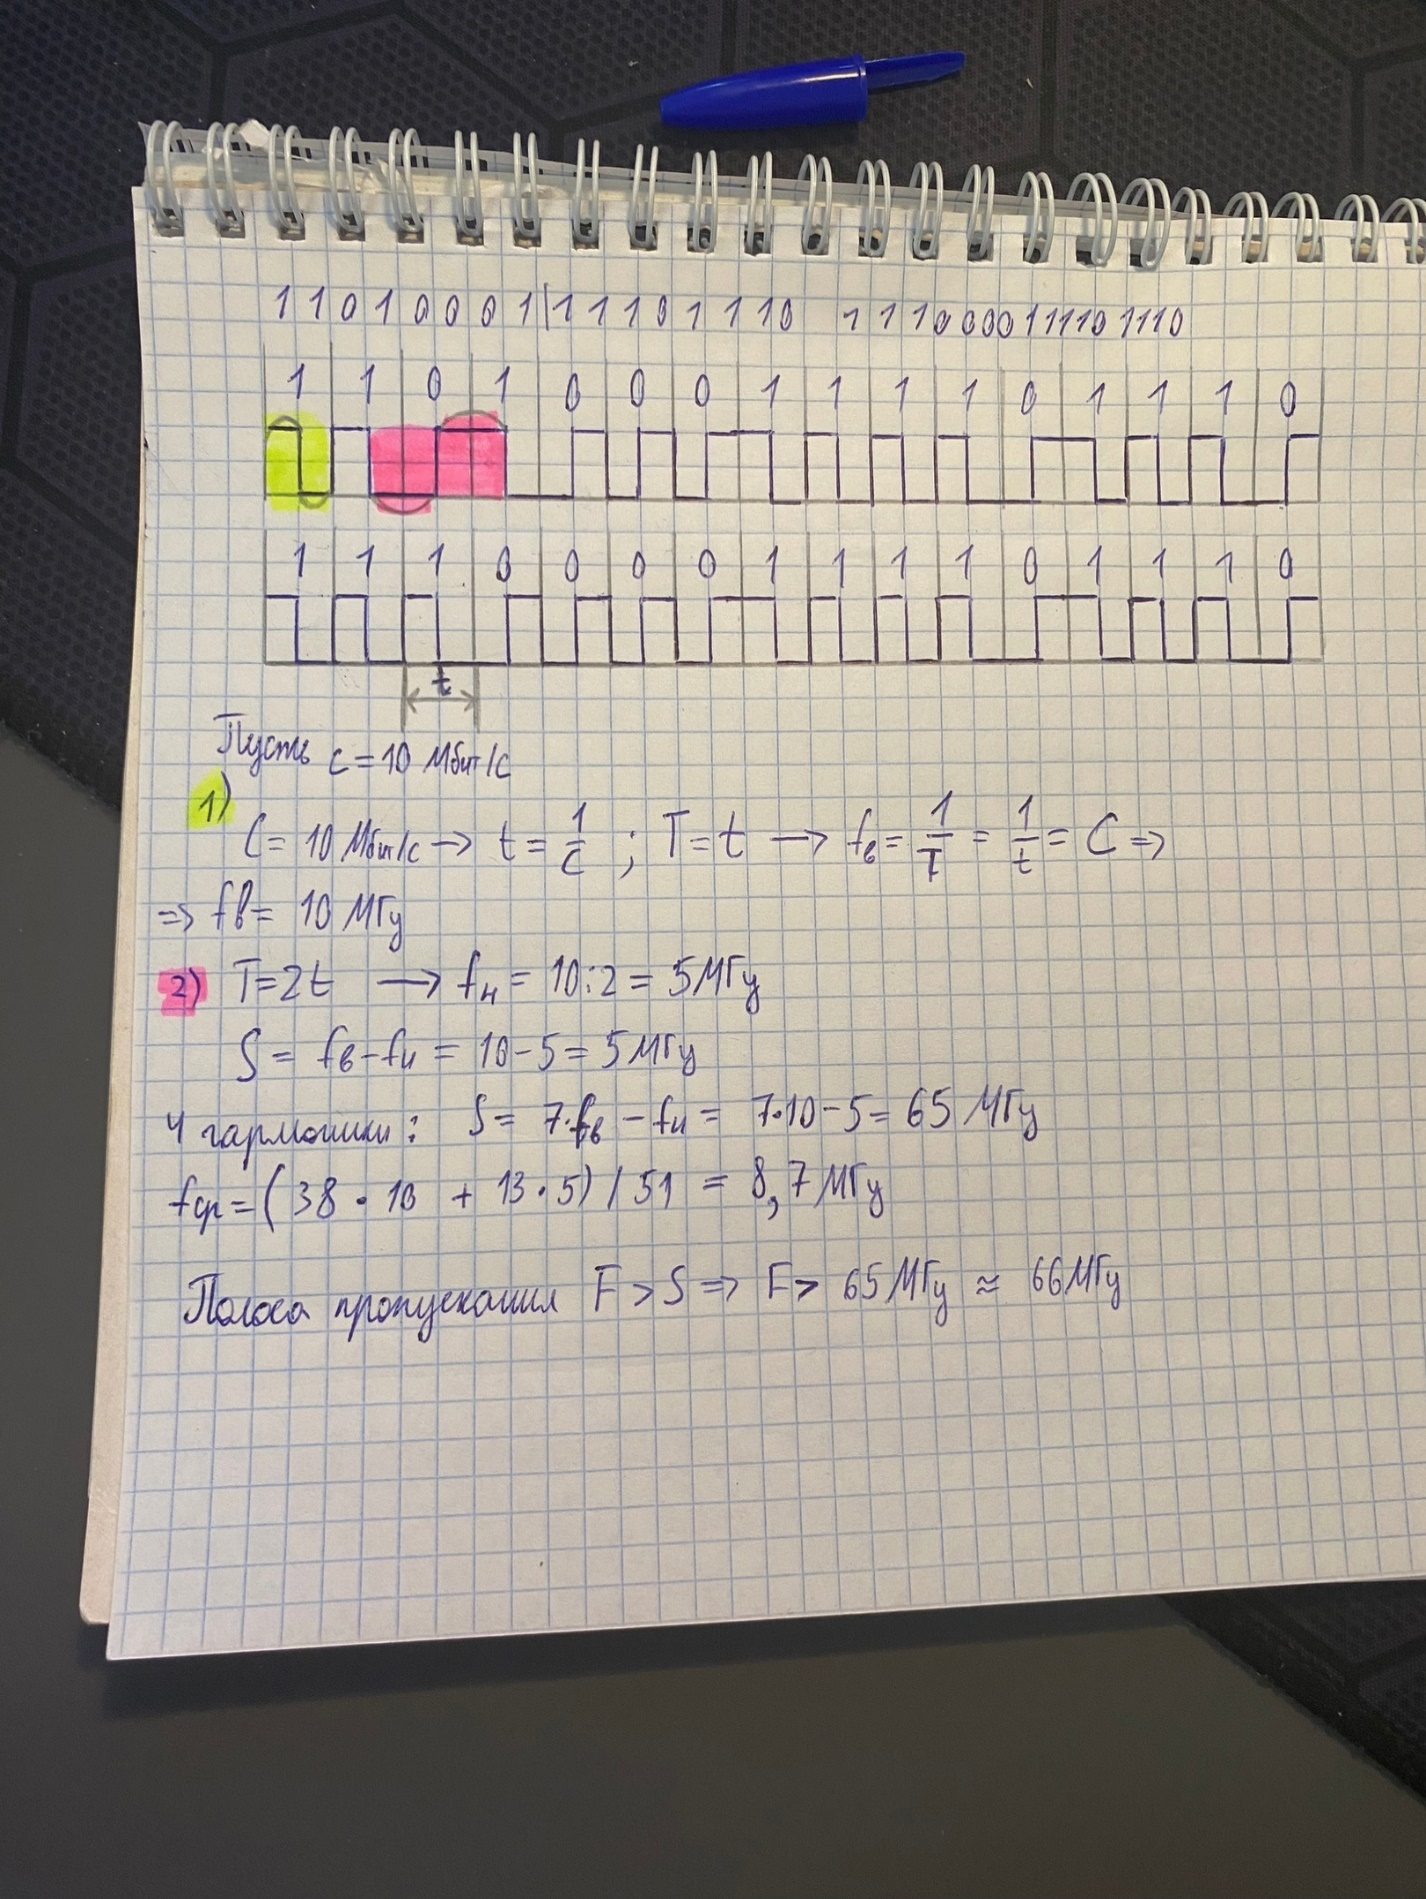 11010001|11101110 1110000111101110
1 1 0 1 0 0 0 1 1 1 1 0 1 1 1 0
1 1 1 0 0 0 0 1 1 1 1 0 1 1 1 0
t
Пусть c = 10 Мбит/с
1)
C = 10 Мбит/с → t = 1/C ; T = t → fв = 1/T = 1/t = C =>
=> fв = 10 МГц
2) T = 2t → fн = 10:2 = 5 МГц
S = fв - fн = 10 - 5 = 5 МГц
4 гармоники: S = 7·fв - fн = 7·10 - 5 = 65 МГц
fср = (38 · 10 + 13 · 5) / 51 = 8,7 МГц
Полоса пропускания F > S => F > 65 МГц ≈ 66 МГц